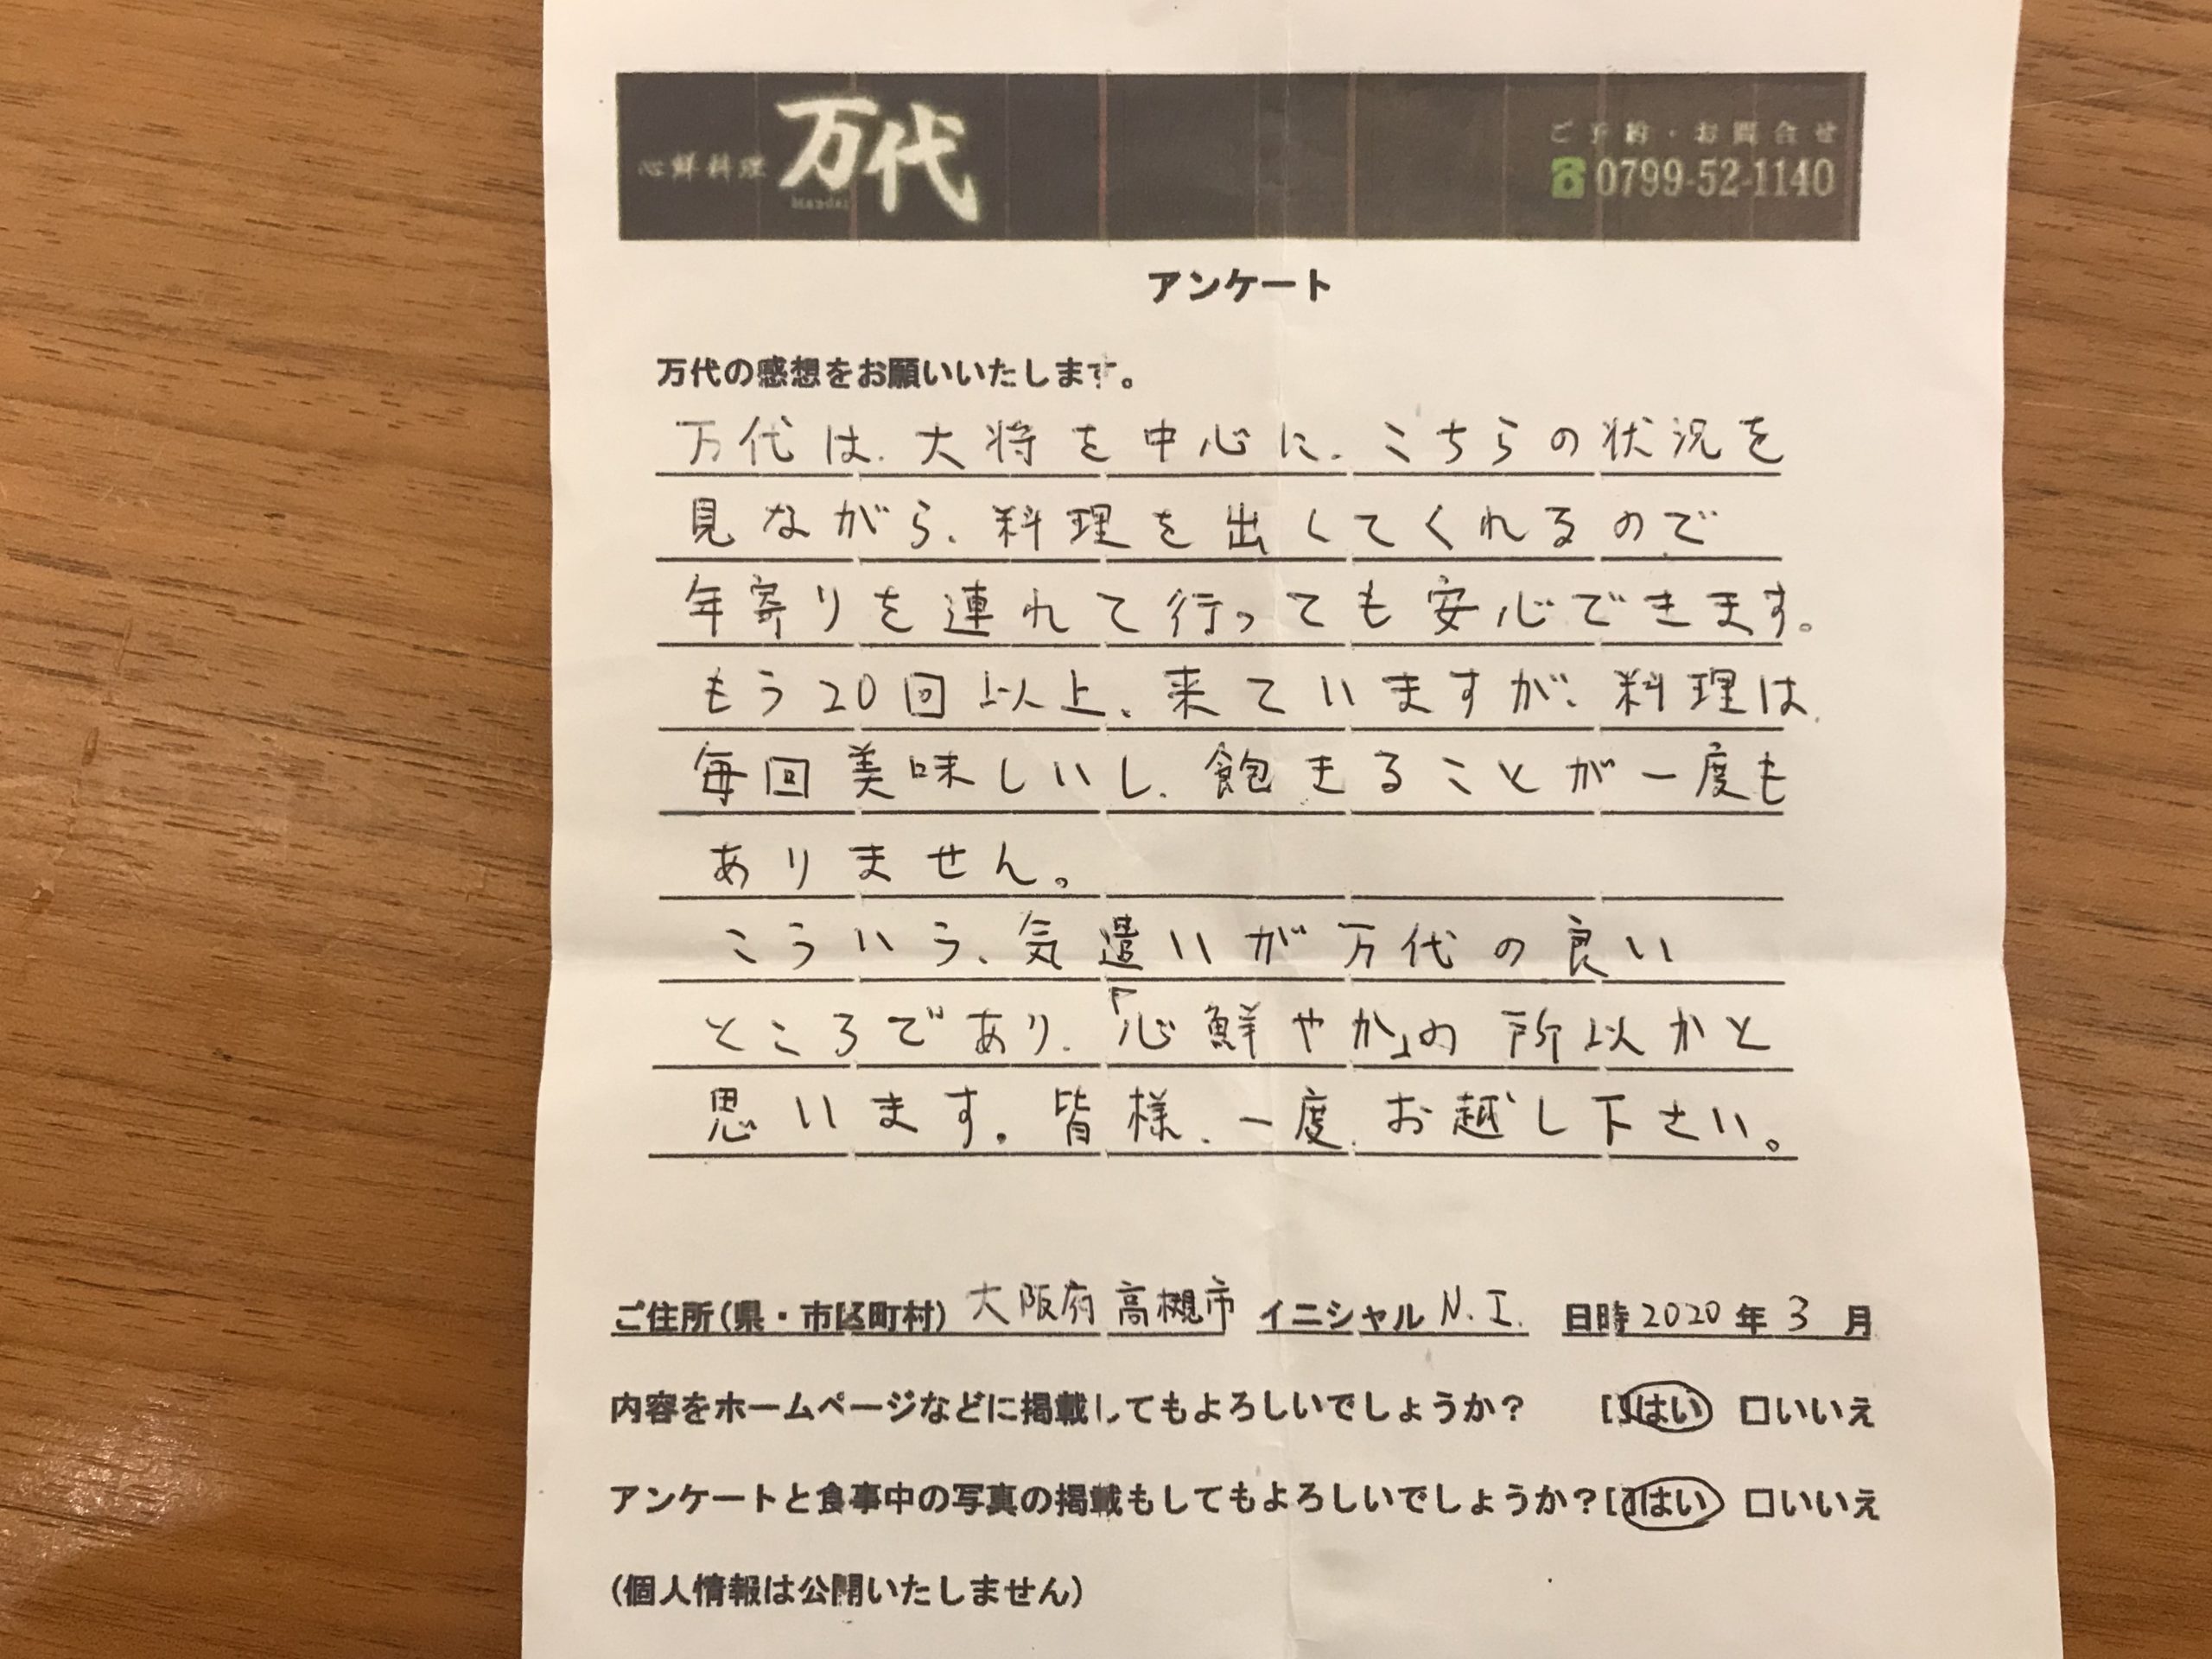 心鮮料理 万代
bandai
ご予約・お問合せ
0799-52-1140
アンケート
万代の感想をお願いいたします。
万代は、大将を中心に、こちらの状況を
見ながら、料理を出してくれるので
年寄りを連れて行っても安心できます。
もう20回以上、来ていますが、料理は、
毎回美味しいし、飽きることが一度も
ありません。
こういう、気遣いが万代の良い
ところであり、「心鮮やか」の所以かと
思います。皆様、一度、お越し下さい。
ご住所(県・市区町村) 大阪府高槻市 イニシャル N.I. 日時 2020年3月
内容をホームページなどに掲載してもよろしいでしょうか? □はい □いいえ
アンケートと食事中の写真の掲載もしてもよろしいでしょうか?□はい □いいえ
(個人情報は公開いたしません)